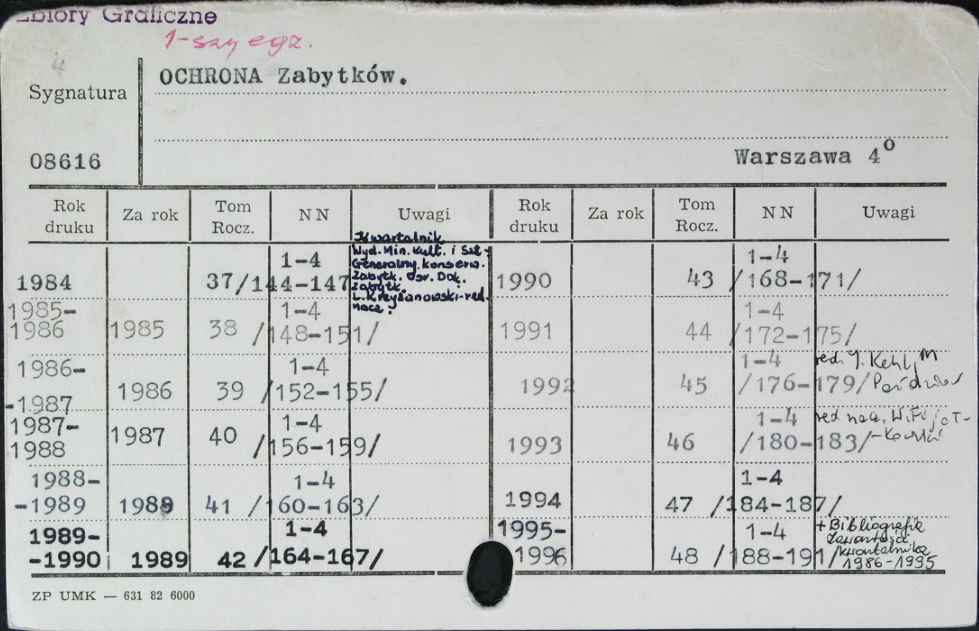 Zbiory Graficzne
1-szy egz.
4
OCHRONA Zabytków.
Sygnatura
08616
Warszawa 4°
Rok druku Za rok Tom Rocz. NN Uwagi Rok druku Za rok Tom Rocz. NN Uwagi
1984 37 1-4 /144-147
Kwartalnik
Wyd. Min. Kult. i Szt.
Generalny. konserw.
Zabytk. Ośr. Dok.
Zabytk.
nacz.
1985-1986 1985 38 1-4 /148-151/
1986--1987 1986 39 1-4 /152-155/
1987-1988 1987 40 1-4 /156-159/
1988--1989 1989 41 1-4 /160-163/
1989--1990 1989 42 1-4 /164-167/
1990 43 1-4 /168-171/
1991 44 1-4 /172-175/
1992 45 1-4 /176-179/ red.
1993 46 1-4 /180-183/ red nacz.
1994 47 1-4 /184-187/
1995-1996 48 1-4 /188-191/
+ Bibliografie
zawartości
kwartalnika
1986-1995
ZP UMK — 631 82 6000